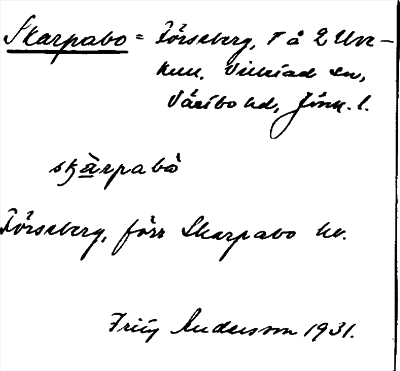 Skarpabo = Försaberg, T å 2 Utve-
kull, Villstad sn,
Västbo hd, Jönk. l.
skàrpabò
Försaberg, förr Skarpabo kv.
Frity Andersson 1931.